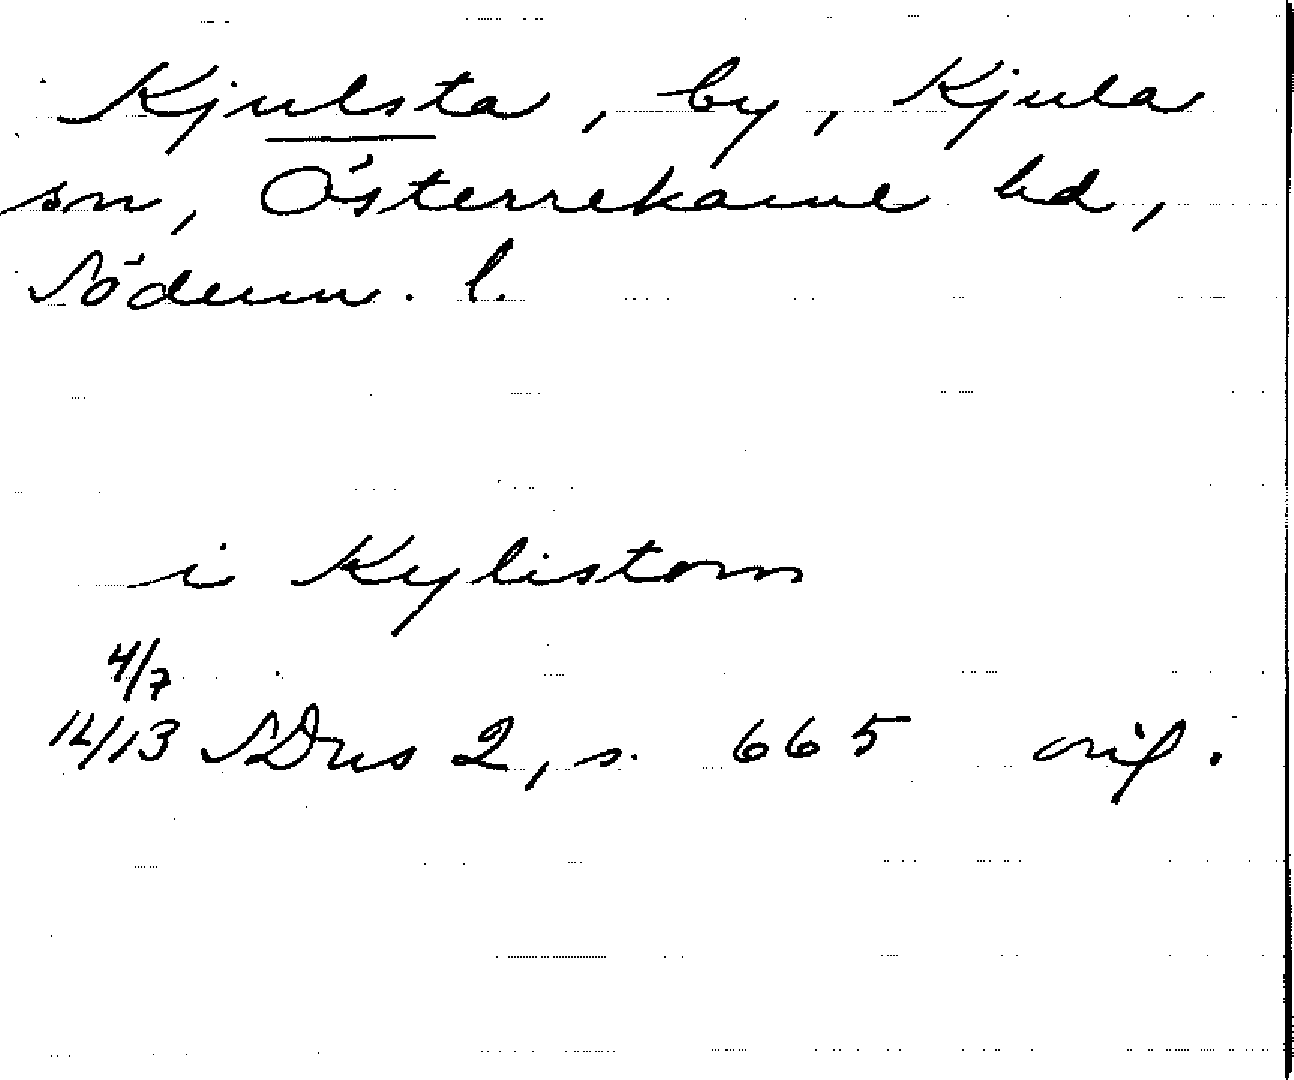 Kjulsta, by, Kjula
sn, Österrekarne hd,
Söderm. l.
i Kylistom
4/7
1413 SDns 2, s. 665 orig.